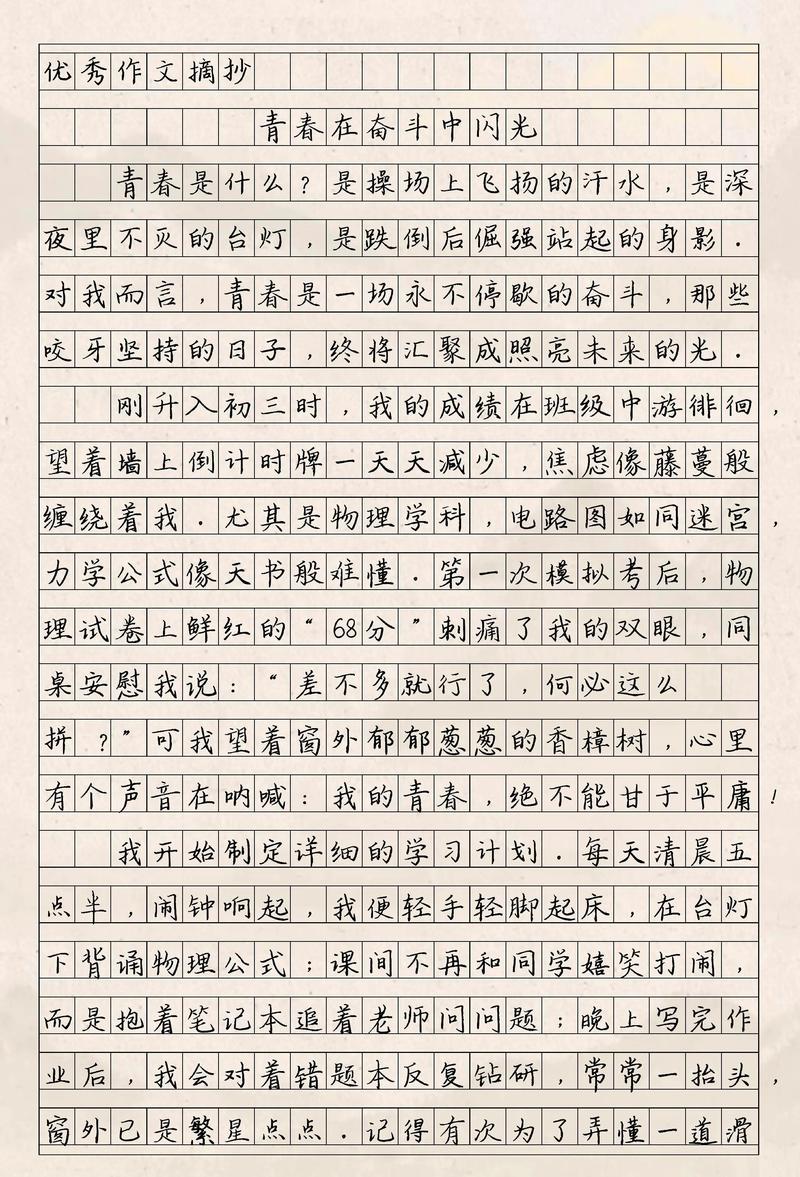 优秀作文摘抄
青春在奋斗中闪光
青春是什么?是操场上飞扬的汗水,是深
夜里不灭的台灯,是跌倒后倔强站起的身影.
对我而言,青春是一场永不停歇的奋斗,那些
咬牙坚持的日子,终将汇聚成照亮未来的光.
刚升入初三时,我的成绩在班级中游徘徊,
望着墙上倒计时牌一天天减少,焦虑像藤蔓般
缠绕着我.尤其是物理学科,电路图如同迷宫,
力学公式像天书般难懂.第一次模拟考后,物
理试卷上鲜红的“68分”刺痛了我的双眼,同
桌安慰我说:“差不多就行了,何必这么
拼?”可我望着窗外郁郁葱葱的香樟树,心里
有个声音在呐喊:我的青春,绝不能甘于平庸!
我开始制定详细的学习计划.每天清晨五
点半,闹钟响起,我便轻手轻脚起床,在台灯
下背诵物理公式;课间不再和同学嬉笑打闹,
而是抱着笔记本追着老师问问题;晚上写完作
业后,我会对着错题本反复钻研,常常一抬头,
窗外已是繁星点点.记得有次为了弄懂一道滑